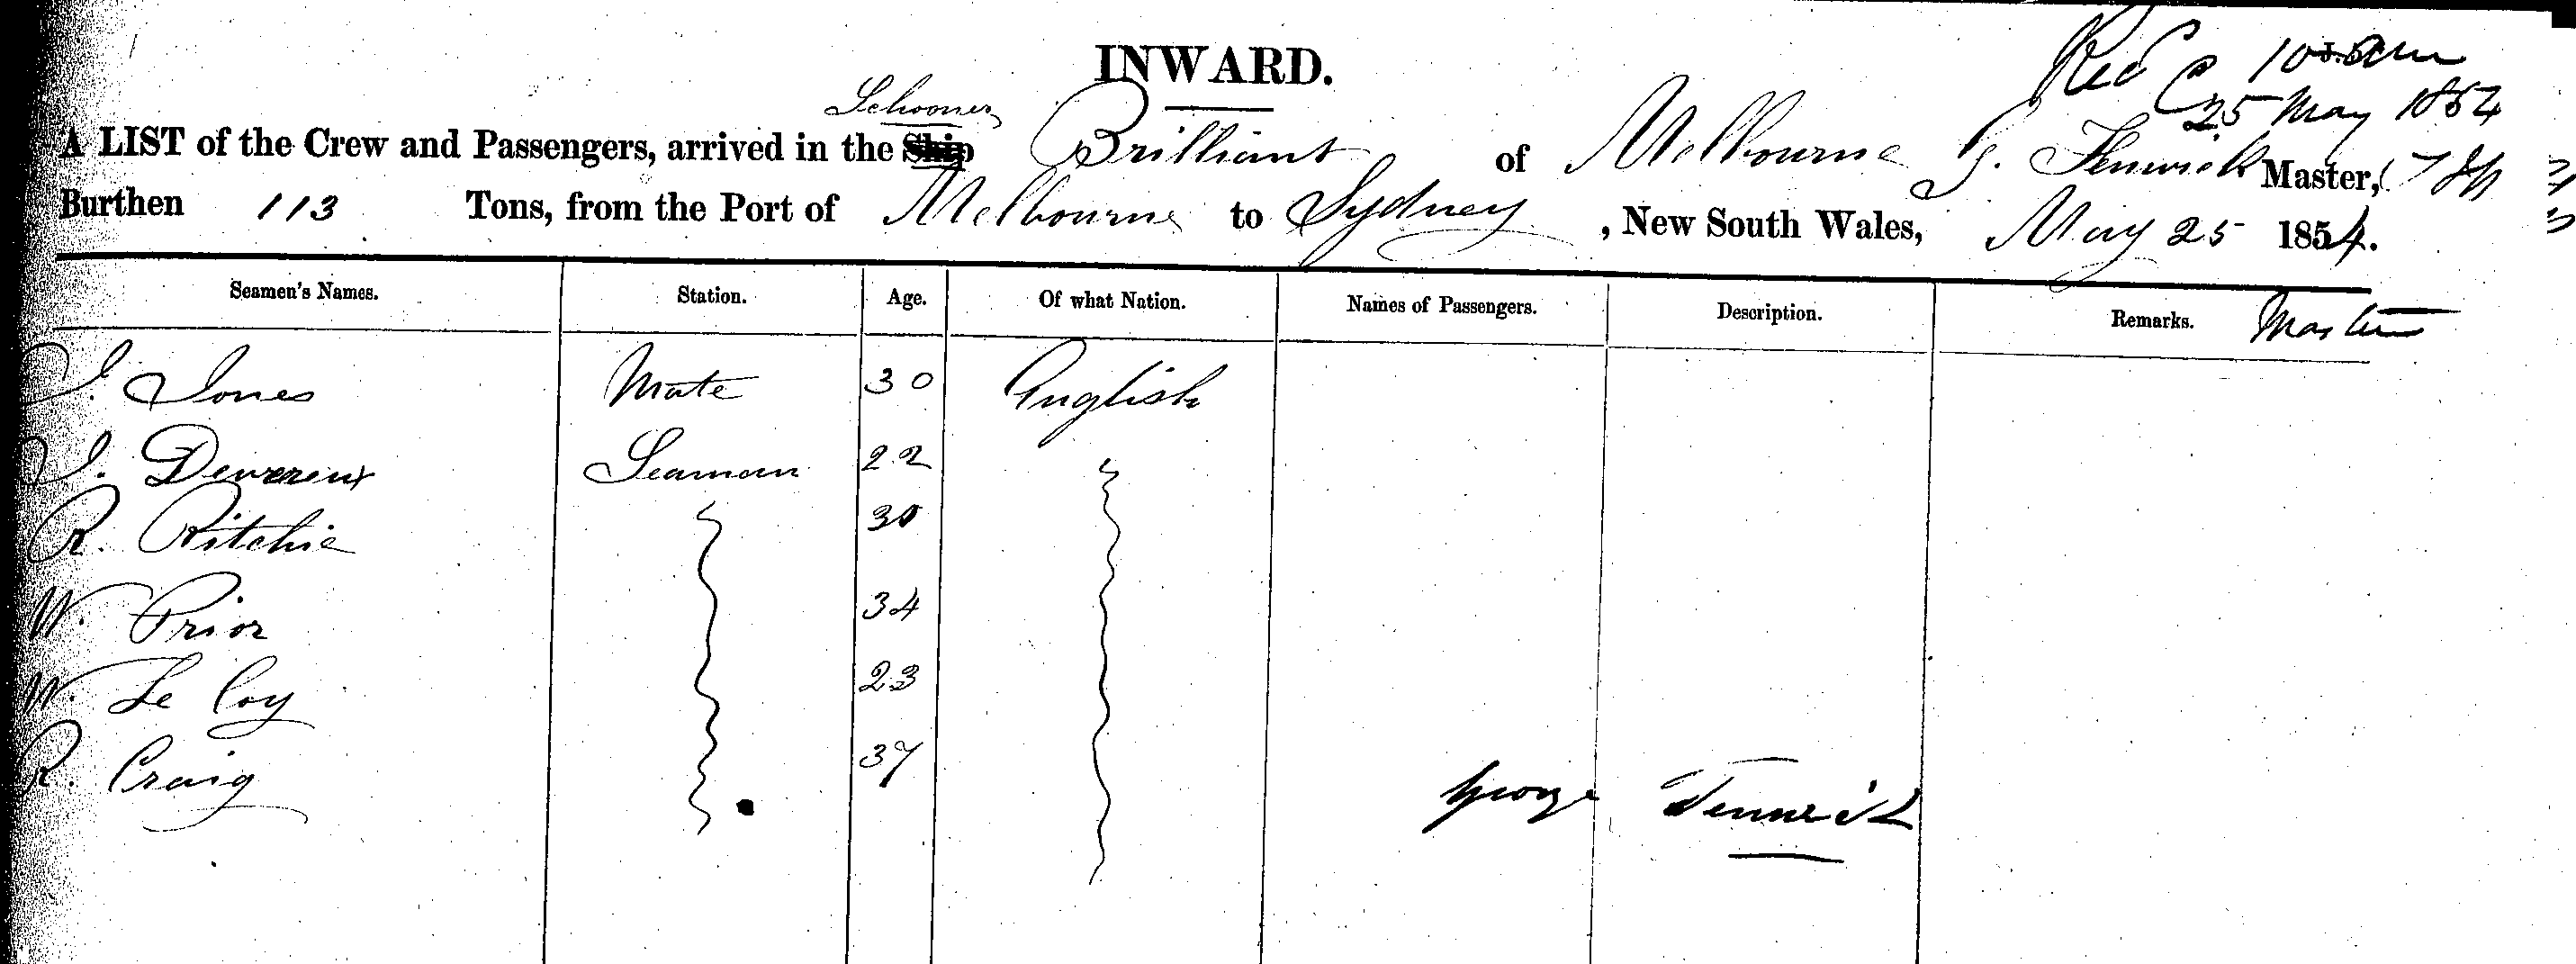 INWARD.
Recd @ 10 am
25 May 1854
Schooner
A LIST of the Crew and Passengers, arrived in the Ship Brilliant of Melbourne G. Fenwick Master,
Burthen 113 Tons, from the Port of Melbourne to Sydney , New South Wales, May 25 1854.
Seamen's Names. Station. Age. Of what Nation. Names of Passengers. Description. Remarks.
J. Jones Mate 30 English
J. Devereux Seaman 22
R. Ritchie 30
W. Prior 34
W. Le Coy 23
R. Craig 37
George Fennwick